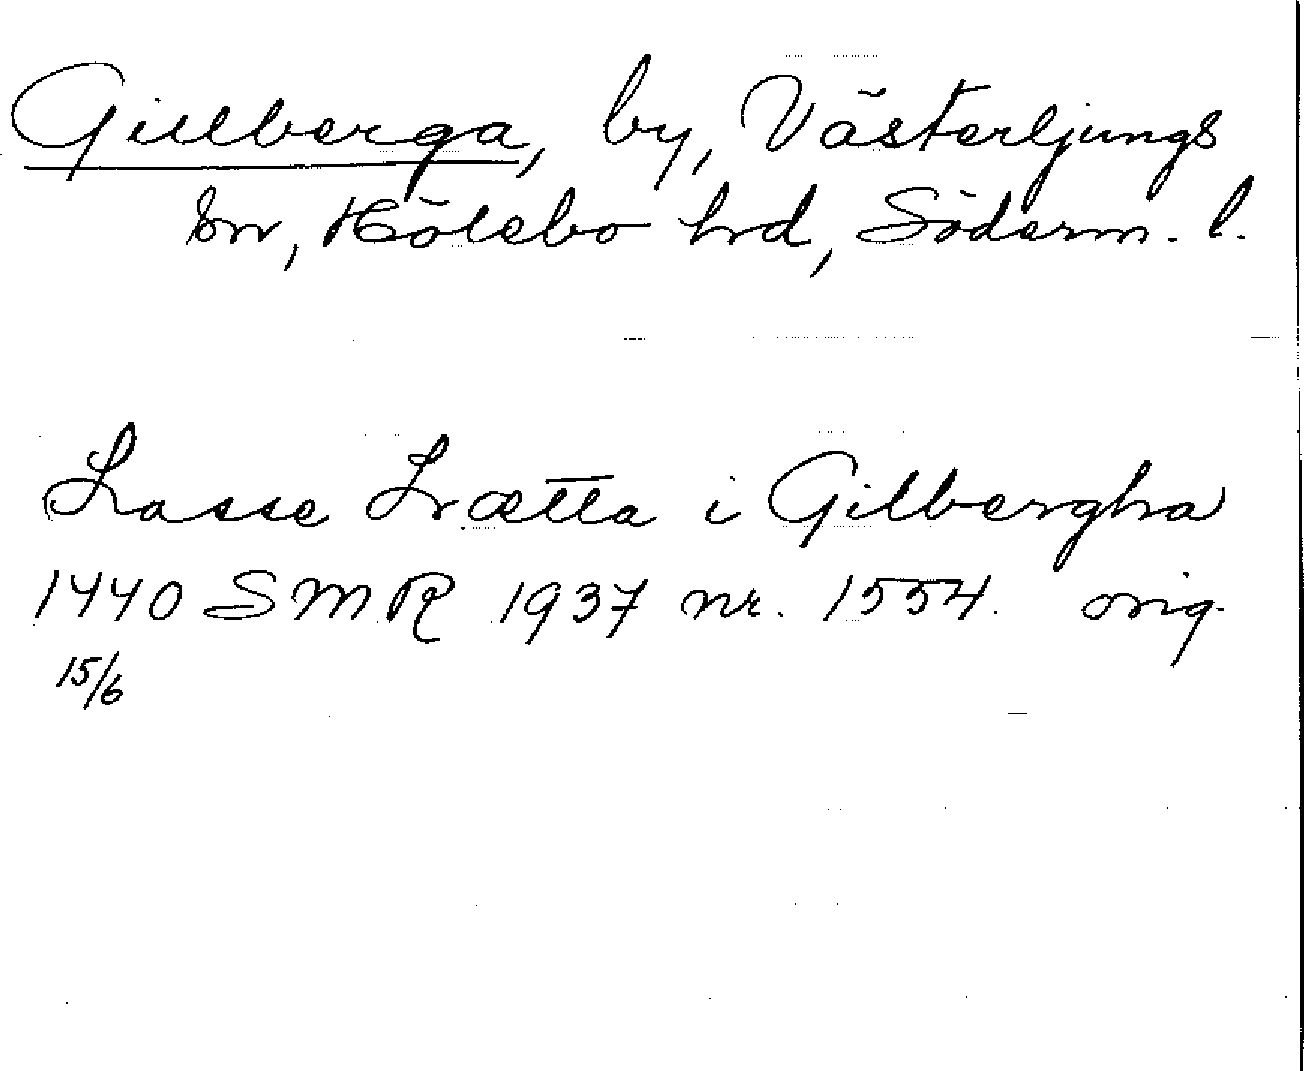 Gillberga, by, Västerljungs
sn, Hölebo hd, Söderm. l.
Lasse Lrætta i Gilbergha
1440 SMR 1937 nr. 1554. orig.
15/6